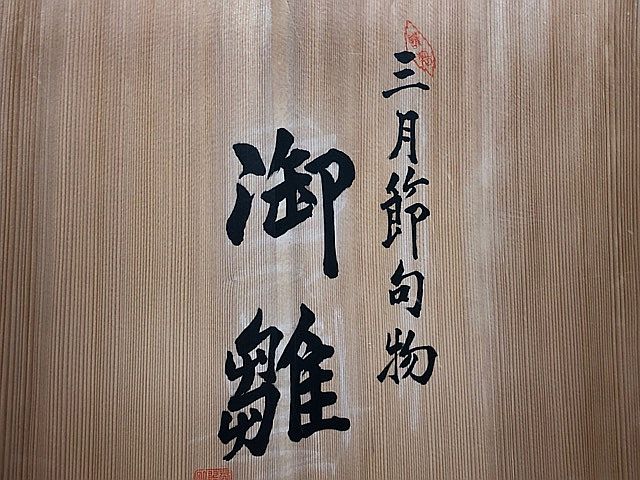 三月節句物
御雛